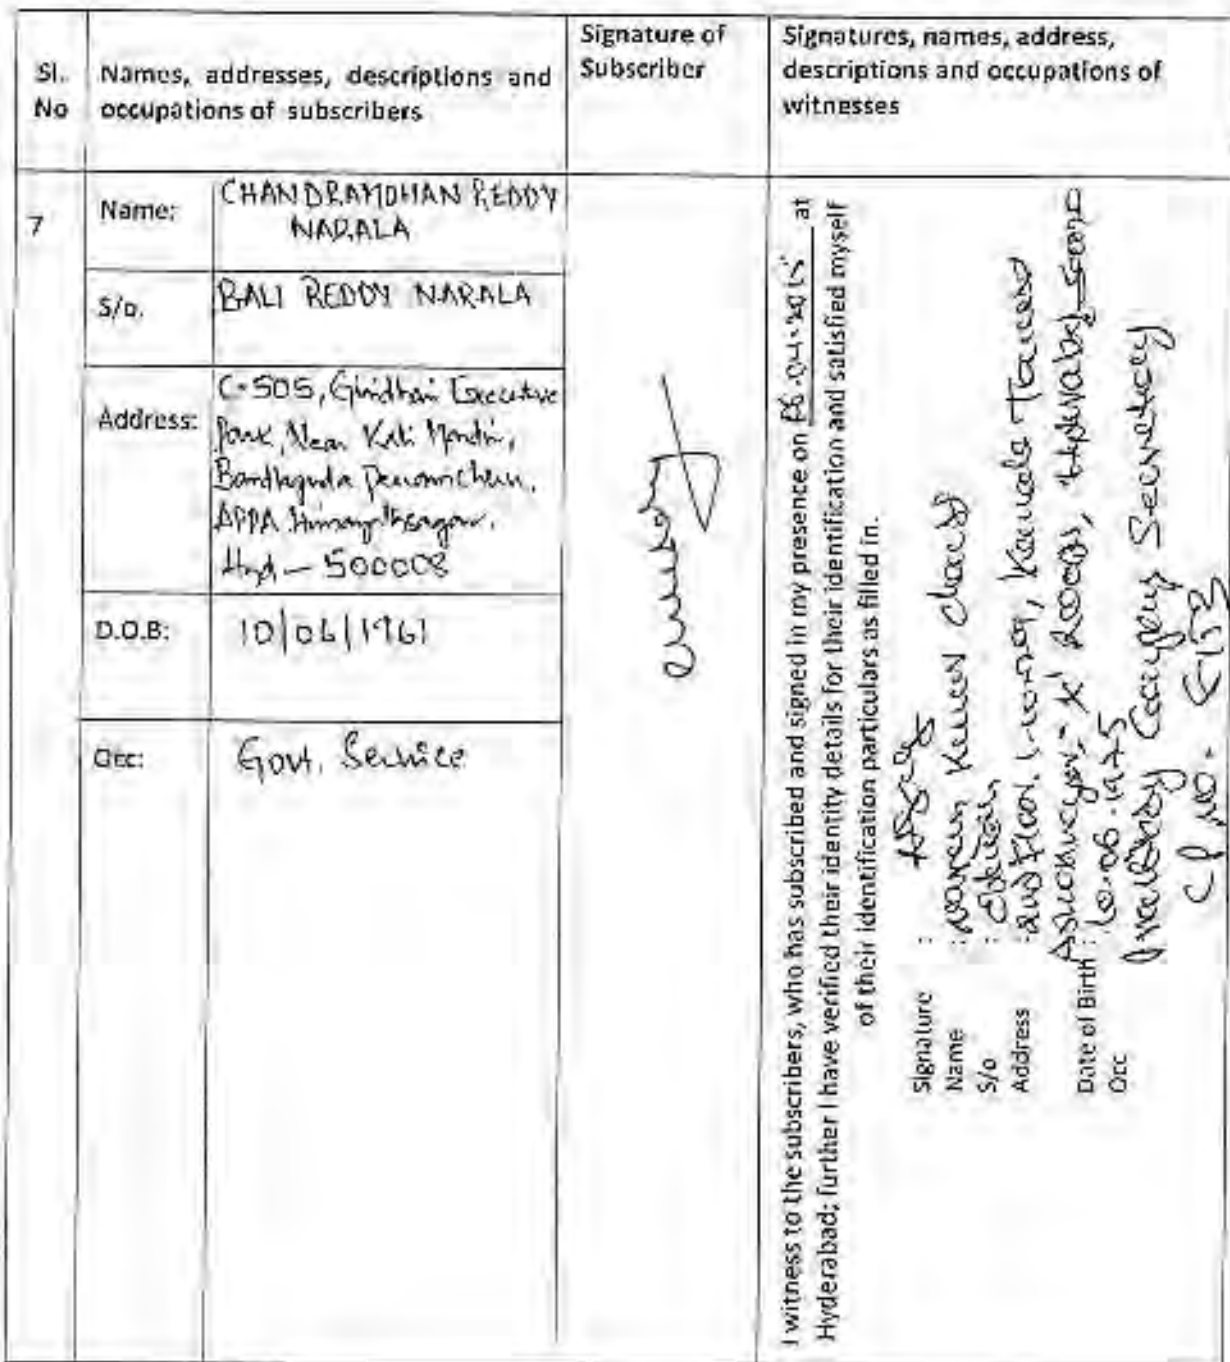 Sl. No
Names, addresses, descriptions and
occupations of subscribers
Signature of
Subscriber
Signatures, names, address,
descriptions and occupations of
witnesses
7
Name:
CHANDRAMOHAN REDDY
NARALA
S/o.
BALI REDDY NARALA
Address:
C-505, Giridhari Executive
Park, Near Kali Mandir,
Bandlaguda
APPA Himayathsagar,
Hyd - 500008
D.O.B:
10/06/1961
Occ:
Govt. Service
I witness to the subscribers, who has subscribed and signed in my presence on 06.04.2015 at
Hyderabad; further I have verified their identity details for their identification and satisfied myself
of their identification particulars as filled in.
Signature :
Name : Kumar
S/o :
Address : 2nd Floor, Kamala Towers
Hyderabad
Date of Birth : 10.06.1975
Occ Company Secretary
CP NO.